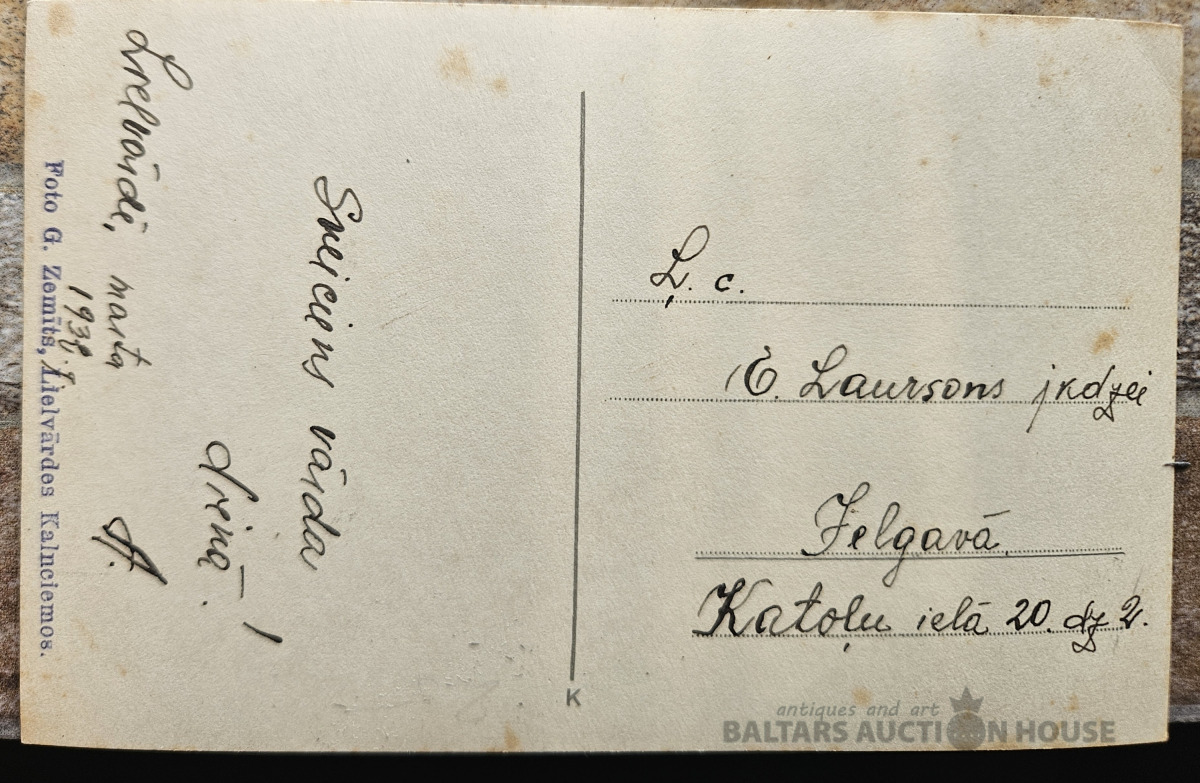 Sveiciens vārda
dienā!
Lielvārdē, martā
1938.g.
Foto G. Zemīts, Lielvārdes Kalnciemos.
K
Ļ. c.
E. Laursons jkdzei
Jelgavā
Katoļu ielā 20. dz 2.
antiques and art
BALTARS AUCTION HOUSE